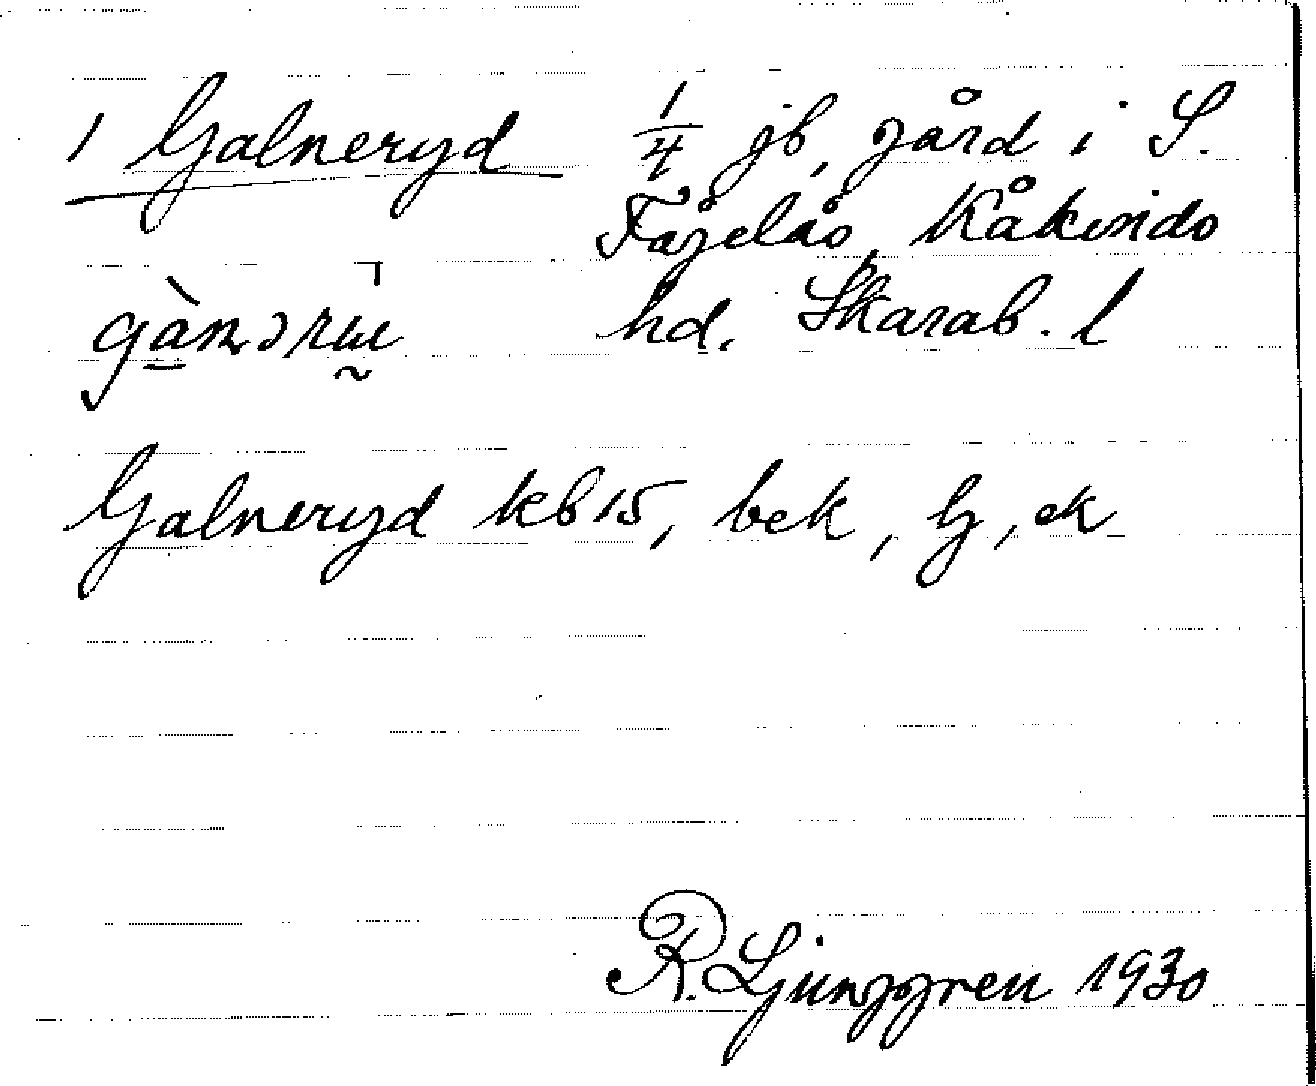 1 Galneryd 1/4 jb, gård i S.
Fågelås, Kåkinds
hd. Skarab. l
Galneryd kb 15, bek, lj, ek
R. Ljunggren 1930